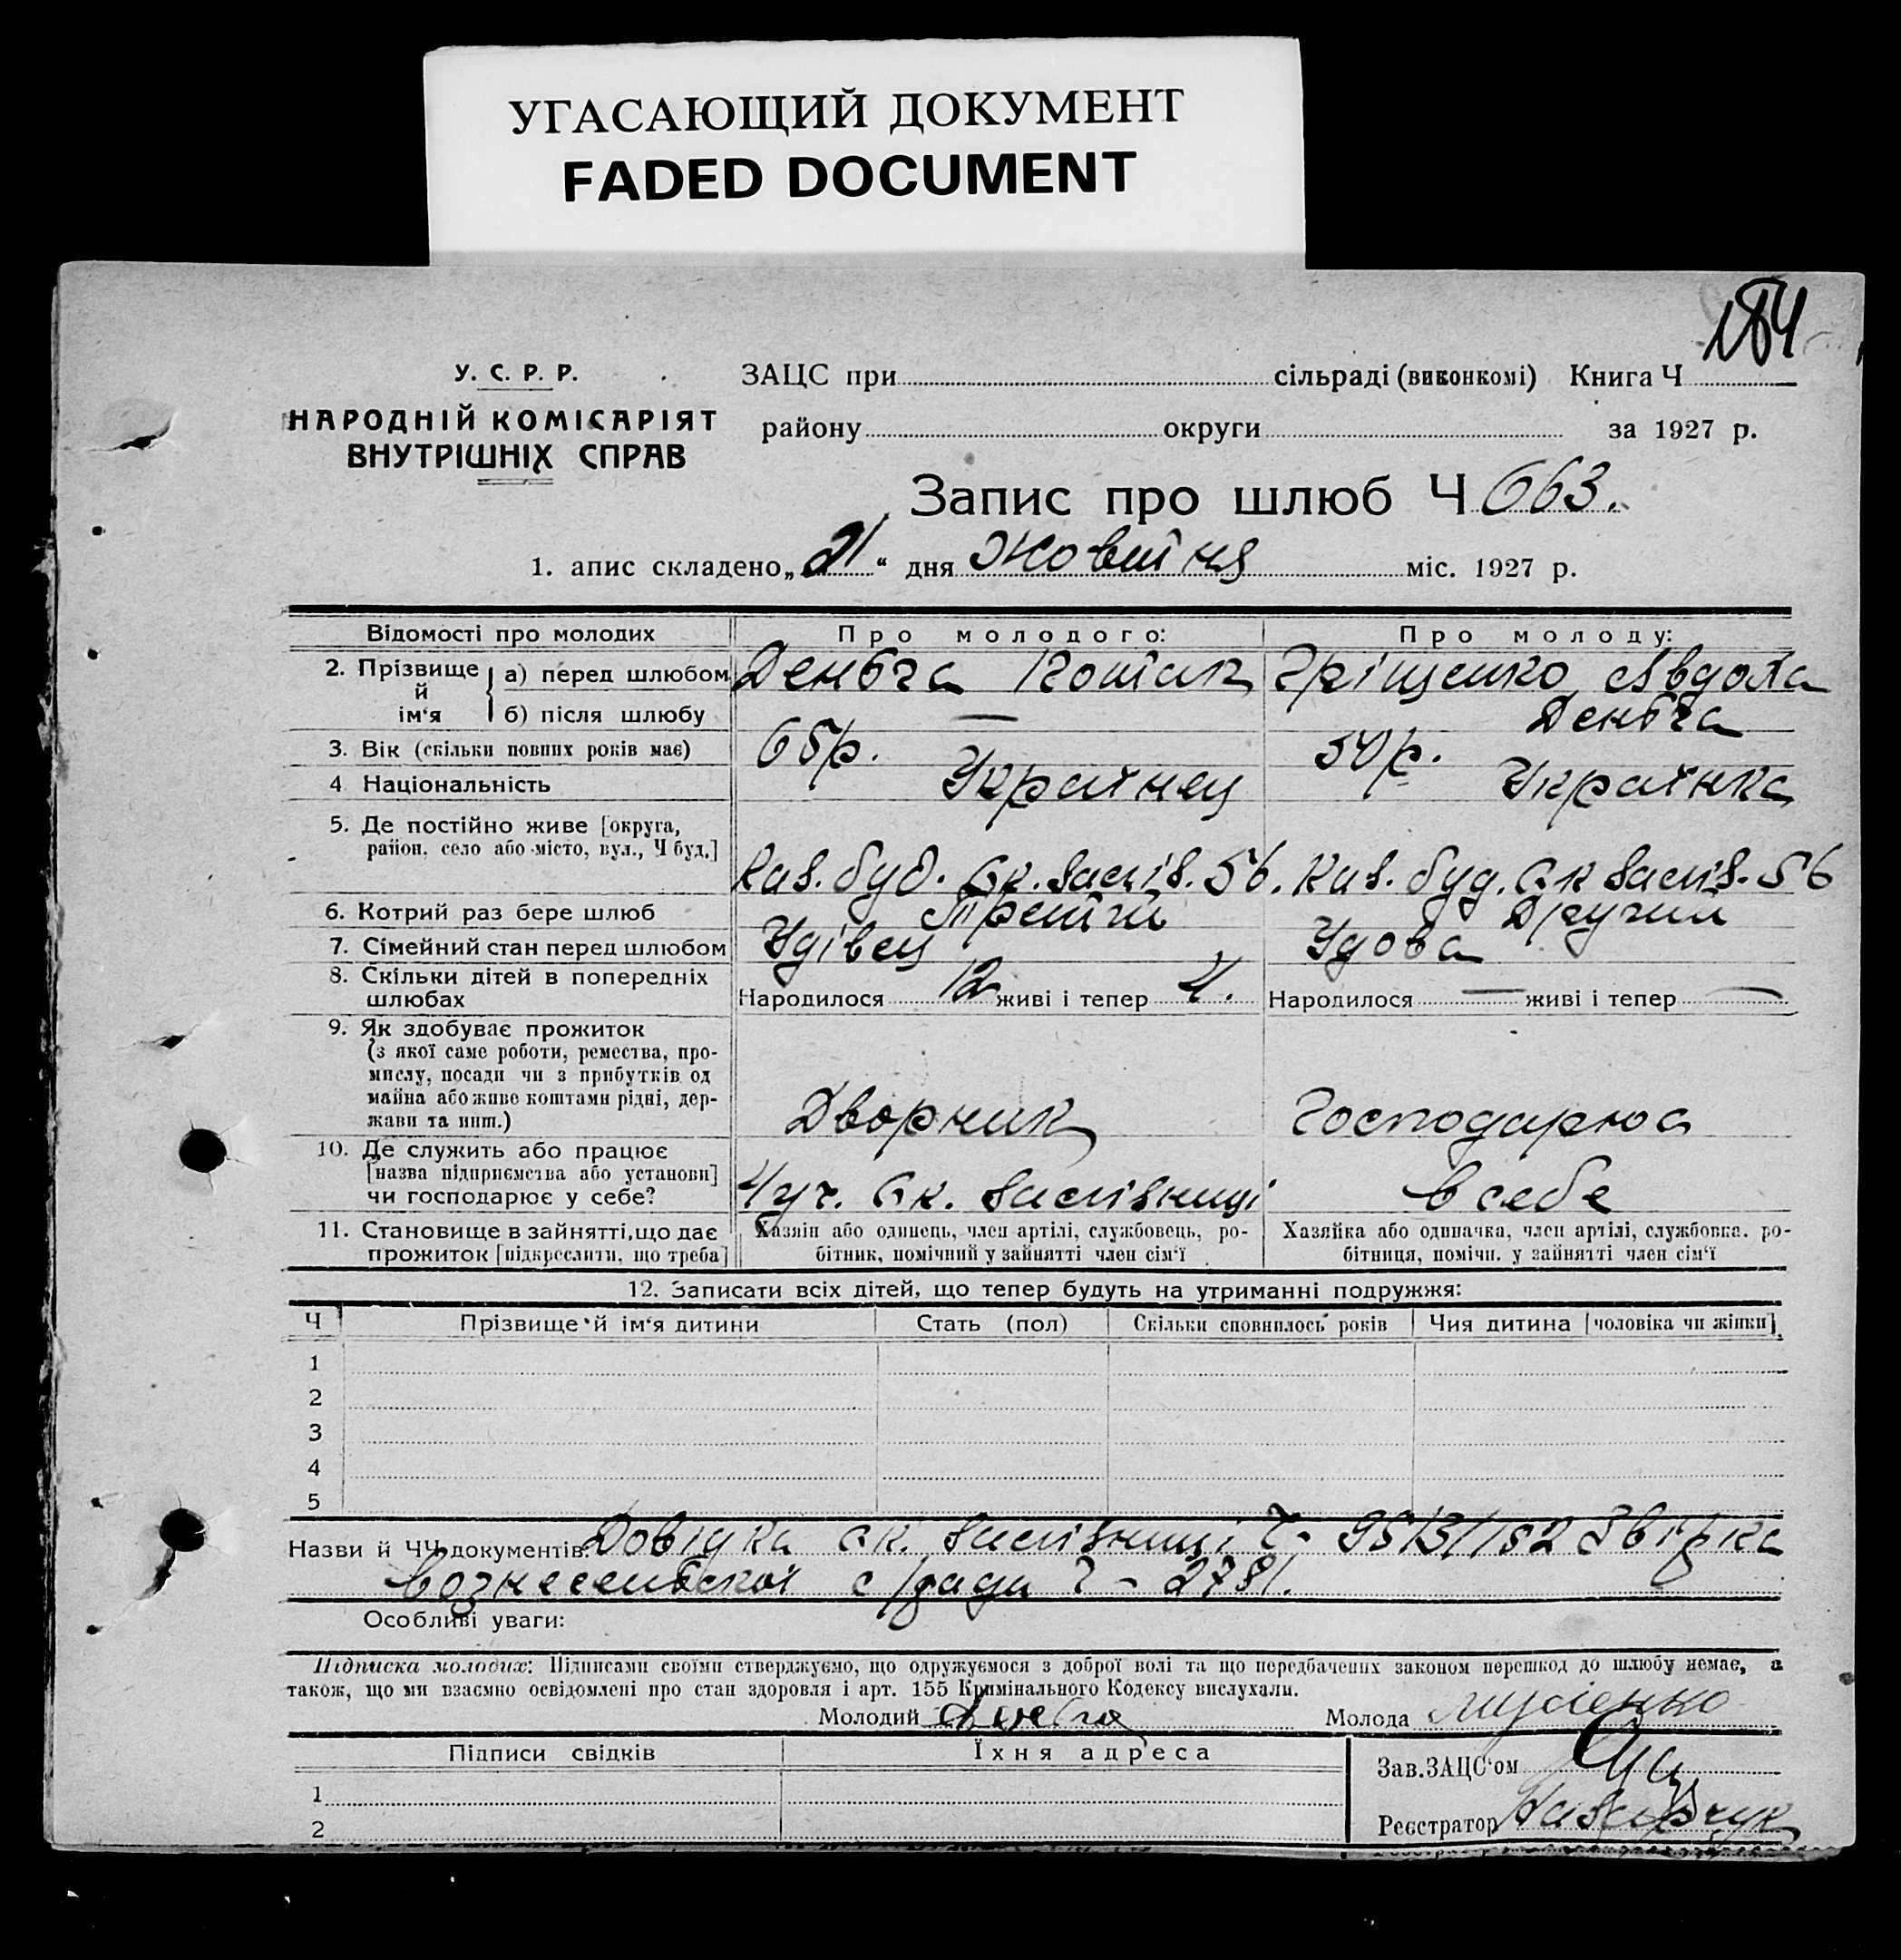 УГАСАЮЩИЙ ДОКУМЕНТ
FADED DOCUMENT
184
У. С. Р. Р.
НАРОДНІЙ КОМІСАРІЯТ
ВНУТРІШНІХ СПРАВ
ЗАЦС при сільраді (виконкомі) Книга Ч
району округи за 1927 р.
Запис про шлюб Ч 663.
1. апис складено „21“ дня Жовтня міс. 1927 р.
Відомості про молодих Про молодого: Про молоду:
2. Прізвище й ім‘я а) перед шлюбом Деньга Грiщенко Авдотя
б) після шлюбу — Деньга
3. Вік (скільки повних років має) 65р. 50р.
4 Національність Украінец Украінка
5. Де постійно живе [округа,
район, село або місто, вул., Ч буд.]
Каз. буд. 56. Каз. буд. 56
6. Котрий раз бере шлюб Третій Другий
7. Сімейний стан перед шлюбом Удівец Удова
8. Скільки дітей в попередніх
шлюбах Народилося 12 живі і тепер 4. Народилося — живі і тепер —
9. Як здобуває прожиток
(з якої саме роботи, ремества, про-
мислу, посади чи з прибутків од
майна або живе коштами рідні, дер-
жави та инш.) Дворник Господарює
10. Де служить або працює
[назва підприємства або установи]
чи господарює у себе? в себе
11. Становище в зайнятті, що дає
прожиток [підкреслити, що треба]
Хазяїн або одинець, член артілі, службовець, ро-
бітник, помічний у зайнятті член сім‘ї
Хазяйка або одиначка, член артілі, службовка. ро-
бітниця, помічн. у зайнятті член сім‘ї
12. Записати всіх дітей, що тепер будуть на утриманні подружжя:
Ч Прізвище й ім‘я дитини Стать (пол) Скільки сповнилось років Чия дитина [чоловіка чи жінки]
1
2
3
4
5
Назви й ЧЧ документів: Довідка Ч-
Вознесенськоі с/ради Ч - 2781.
Особливі уваги:
Підписка молодих: Підписами своїми стверджуємо, що одружуємося з доброї волі та що передбачених законом перешкод до шлюбу немає, а
також, що ми взаємно освідомлені про стан здоровля і арт. 155 Кримінального Кодексу вислухали.
Молодий Деньга Молода
Підписи свідків Їхня адреса
Зав.ЗАЦС‘ом
1
Реєстратор
2